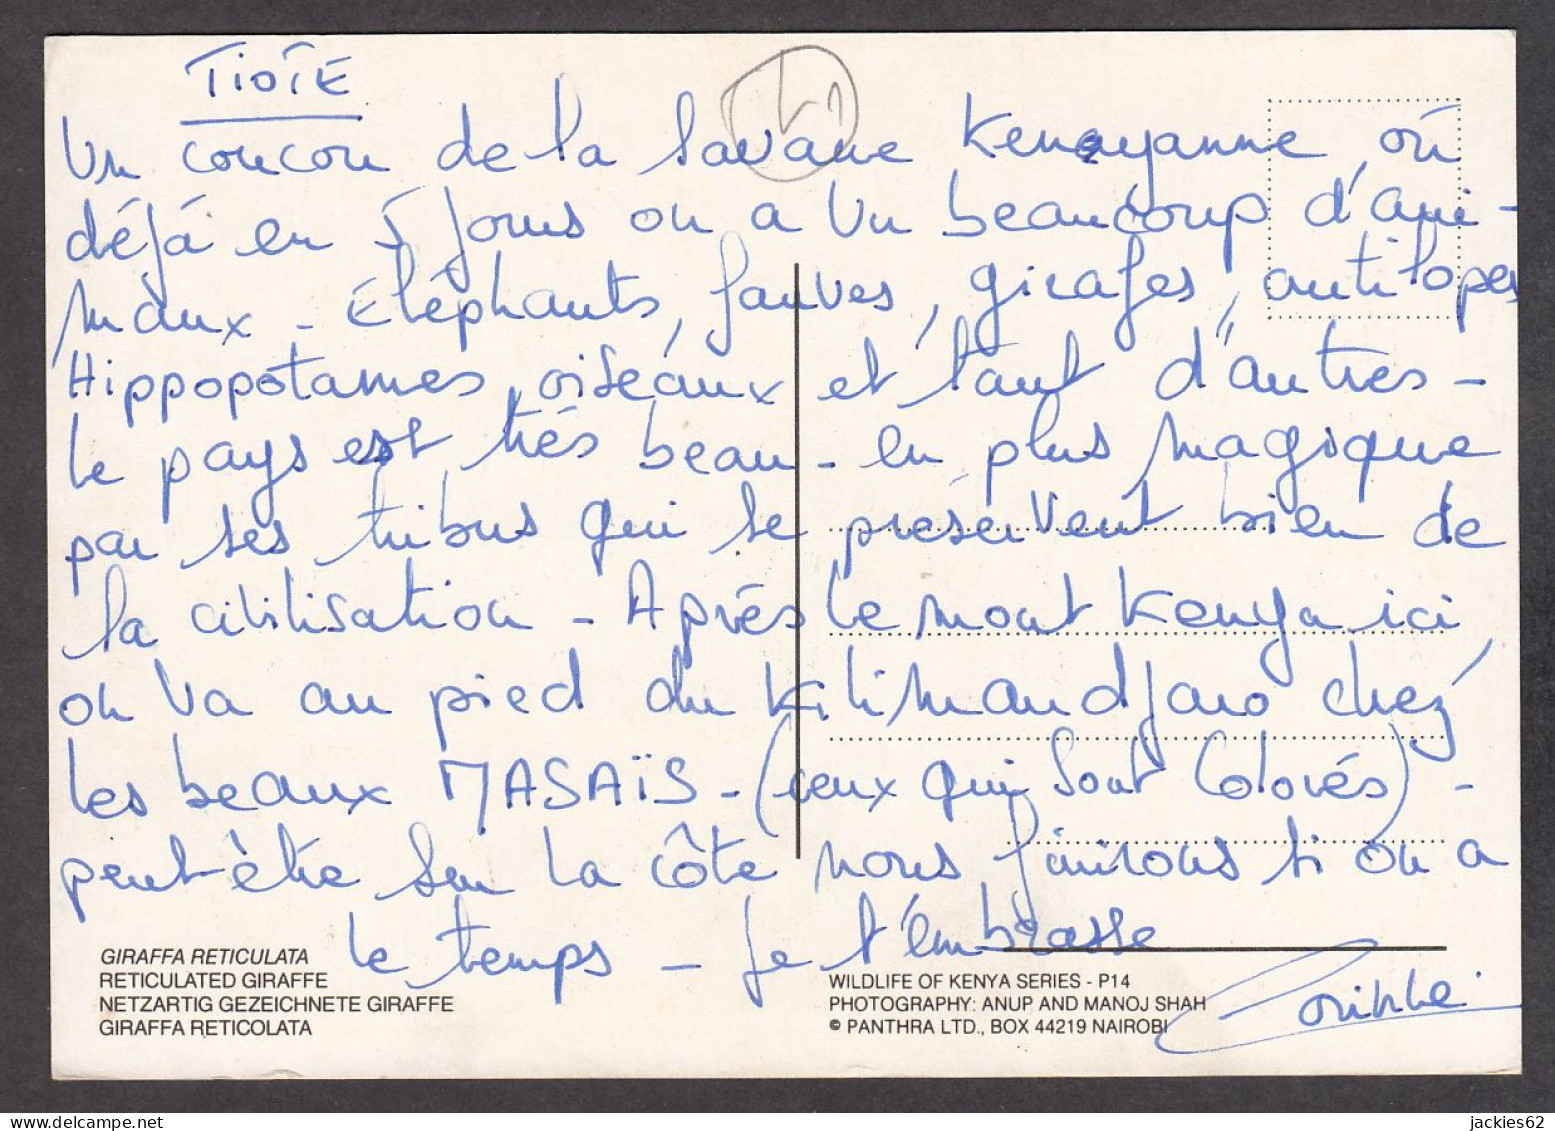 TIOTE
Un coucou de la savane Kenyanne, où
déjà en 5 jours on a vu beaucoup d'ani-
maux - Eléphants, fauves, girafes, antilopes
Hippopotames, oiseaux et tant d'autres -
Le pays est très beau - en plus magique
par ses tribus qui se préservent bien de
la civilisation - Après le mont Kenya ici,
on va au pied du Kilimandjaro chez
les beaux MASAÏS - (ceux qui sont Colorés) -
peut-être sur la côte nous finirons si on a
le temps - Je t'embrasse
Corinne
GIRAFFA RETICULATA
RETICULATED GIRAFFE
NETZARTIG GEZEICHNETE GIRAFFE
GIRAFFA RETICOLATA
WILDLIFE OF KENYA SERIES - P14
PHOTOGRAPHY: ANUP AND MANOJ SHAH
© PANTHRA LTD., BOX 44219 NAIROBI
jackies62